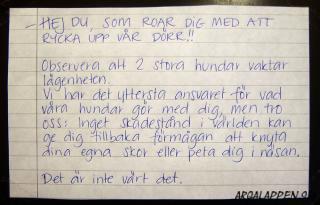 - HEJ DU, SOM ROAR DIG MED ATT
RYCKA UPP VÅR DÖRR!!
Observera att 2 stora hundar vaktar
lägenheten.
Vi har det yttersta ansvaret för vad
våra hundar gör med dig, men tro
oss: Inget skadestånd i världen kan
ge dig tillbaka förmågan att knyta
dina egna skor eller peta dig i näsan.
Det är inte värt det.